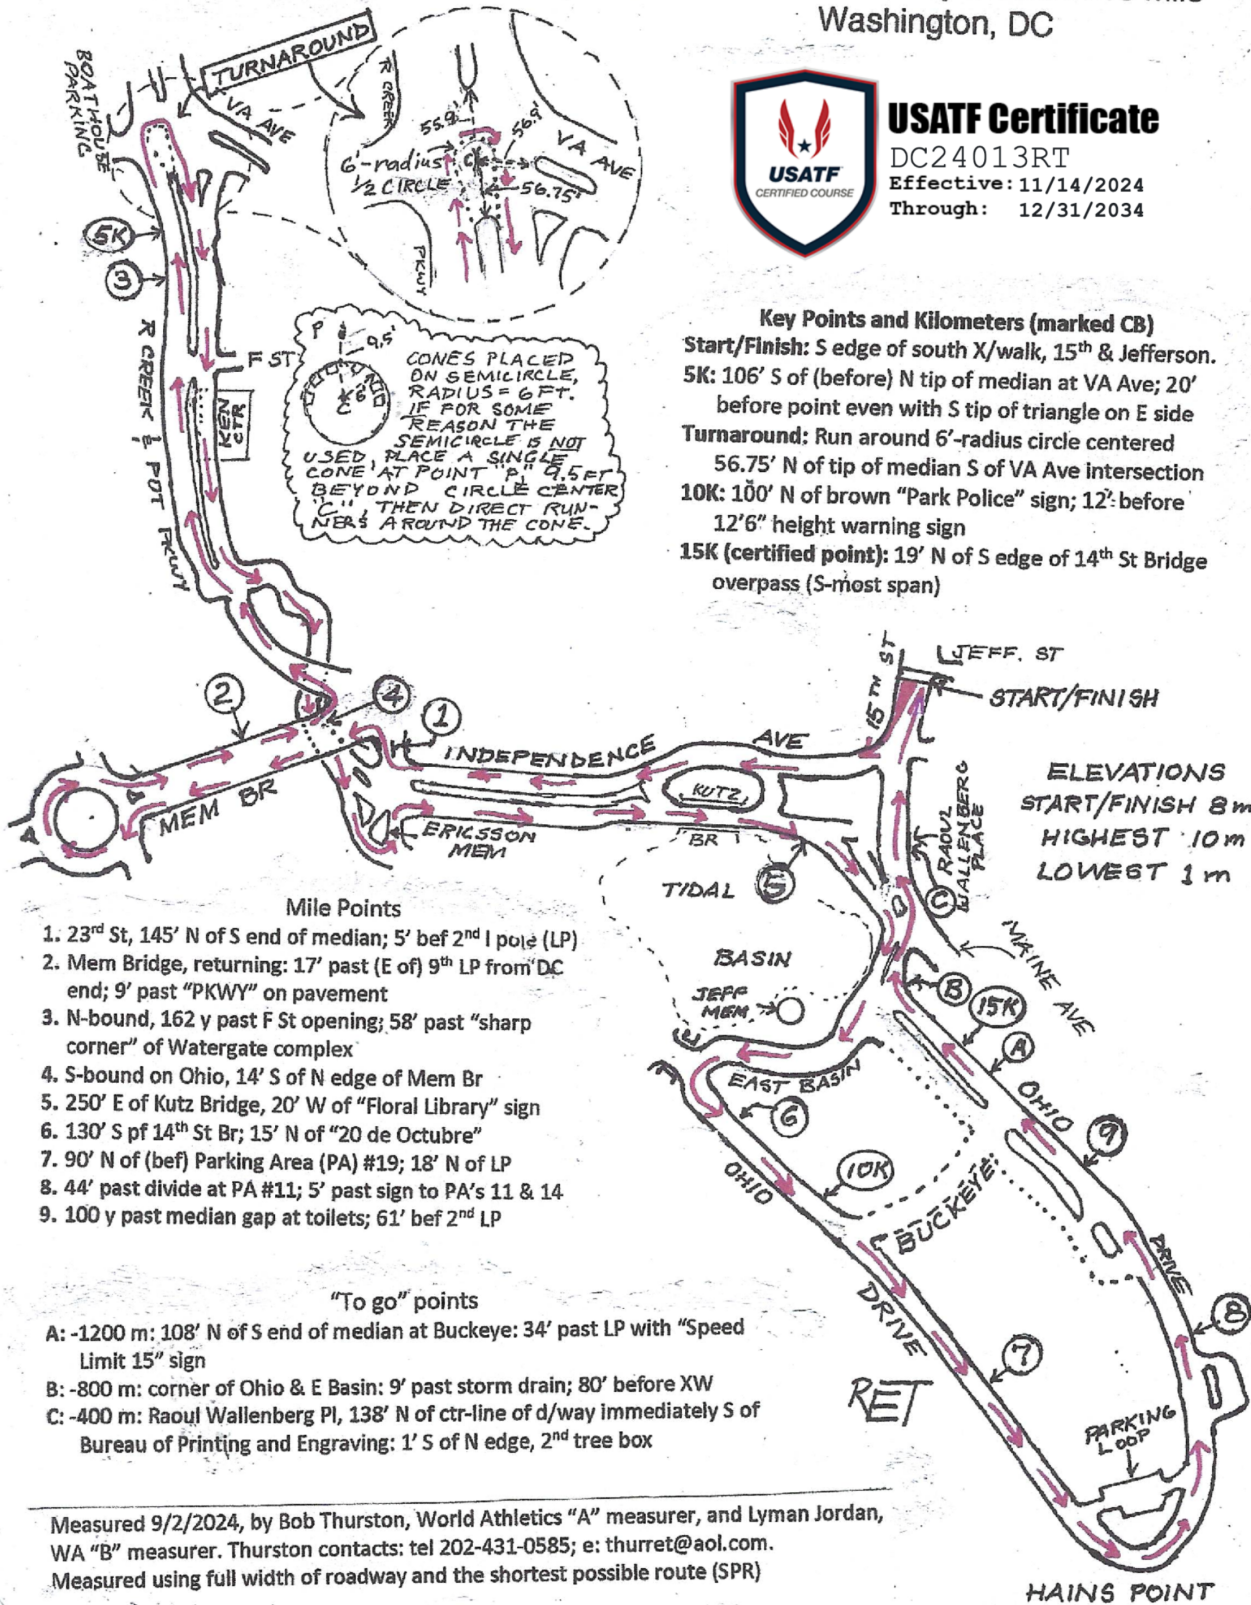 Washington, DC
USATF
CERTIFIED COURSE
USATF Certificate
DC24013RT
Effective: 11/14/2024
Through: 12/31/2034
BOATHOUSE
PARKING
TURNAROUND
VA AVE
R CREEK
55.9'
56.9'
VA AVE
6'-radius
1/2 CIRCLE
C
56.75'
PKWY
5K
3
R CREEK & POT PKWY
F ST
KEN
CTR
P
9.5'
6'
C
CONES PLACED
ON SEMICIRCLE,
RADIUS = 6 FT.
IF FOR SOME
REASON THE
SEMICIRCLE IS NOT
USED, PLACE A SINGLE
CONE AT POINT "P," 9.5 FT
BEYOND CIRCLE CENTER
"C", THEN DIRECT RUN-
NERS AROUND THE CONE.
Key Points and Kilometers (marked CB)
Start/Finish: S edge of south X/walk, 15th & Jefferson.
5K: 106' S of (before) N tip of median at VA Ave; 20'
before point even with S tip of triangle on E side
Turnaround: Run around 6'-radius circle centered
56.75' N of tip of median S of VA Ave intersection
10K: 100' N of brown "Park Police" sign; 12' before
12'6" height warning sign
15K (certified point): 19' N of S edge of 14th St Bridge
overpass (S-most span)
15TH ST
JEFF. ST
START/FINISH
2
4
1
INDEPENDENCE AVE
KUTZ
BR
MEM BR
ERICSSON
MEM
RAOUL
WALLENBERG
PLACE
ELEVATIONS
START/FINISH 8m
HIGHEST 10m
LOWEST 1m
TIDAL
BASIN
5
C
JEFF
MEM
MAINE AVE
B
15K
A
EAST BASIN
6
OHIO
10K
BUCKEYE
OHIO
9
DRIVE
DRIVE
8
7
RET
PARKING
LOOP
HAINS POINT
Mile Points
1. 23rd St, 145' N of S end of median; 5' bef 2nd l pole (LP)
2. Mem Bridge, returning: 17' past (E of) 9th LP from DC
end; 9' past "PKWY" on pavement
3. N-bound, 162 y past F St opening; 58' past "sharp
corner" of Watergate complex
4. S-bound on Ohio, 14' S of N edge of Mem Br
5. 250' E of Kutz Bridge, 20' W of "Floral Library" sign
6. 130' S pf 14th St Br; 15' N of "20 de Octubre"
7. 90' N of (bef) Parking Area (PA) #19; 18' N of LP
8. 44' past divide at PA #11; 5' past sign to PA's 11 & 14
9. 100 y past median gap at toilets; 61' bef 2nd LP
"To go" points
A: -1200 m: 108' N of S end of median at Buckeye: 34' past LP with "Speed
Limit 15" sign
B: -800 m: corner of Ohio & E Basin: 9' past storm drain; 80' before XW
C: -400 m: Raoul Wallenberg Pl, 138' N of ctr-line of d/way immediately S of
Bureau of Printing and Engraving: 1' S of N edge, 2nd tree box
Measured 9/2/2024, by Bob Thurston, World Athletics "A" measurer, and Lyman Jordan,
WA "B" measurer. Thurston contacts: tel 202-431-0585; e: thurret@aol.com.
Measured using full width of roadway and the shortest possible route (SPR)